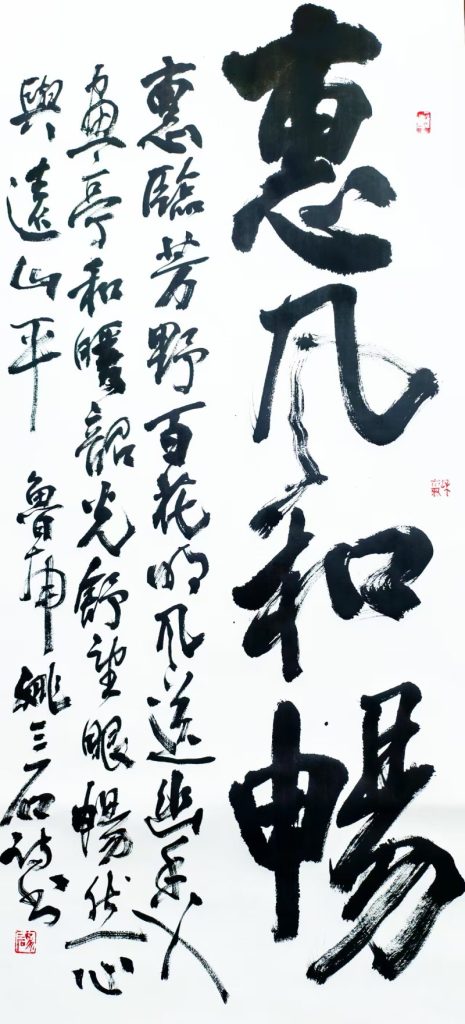 惠风和暢
惠臨芳野百花明风送幽香入
畫亭和暖韶光舒望眼暢然心
與遠山平 魯南姚三石詩书